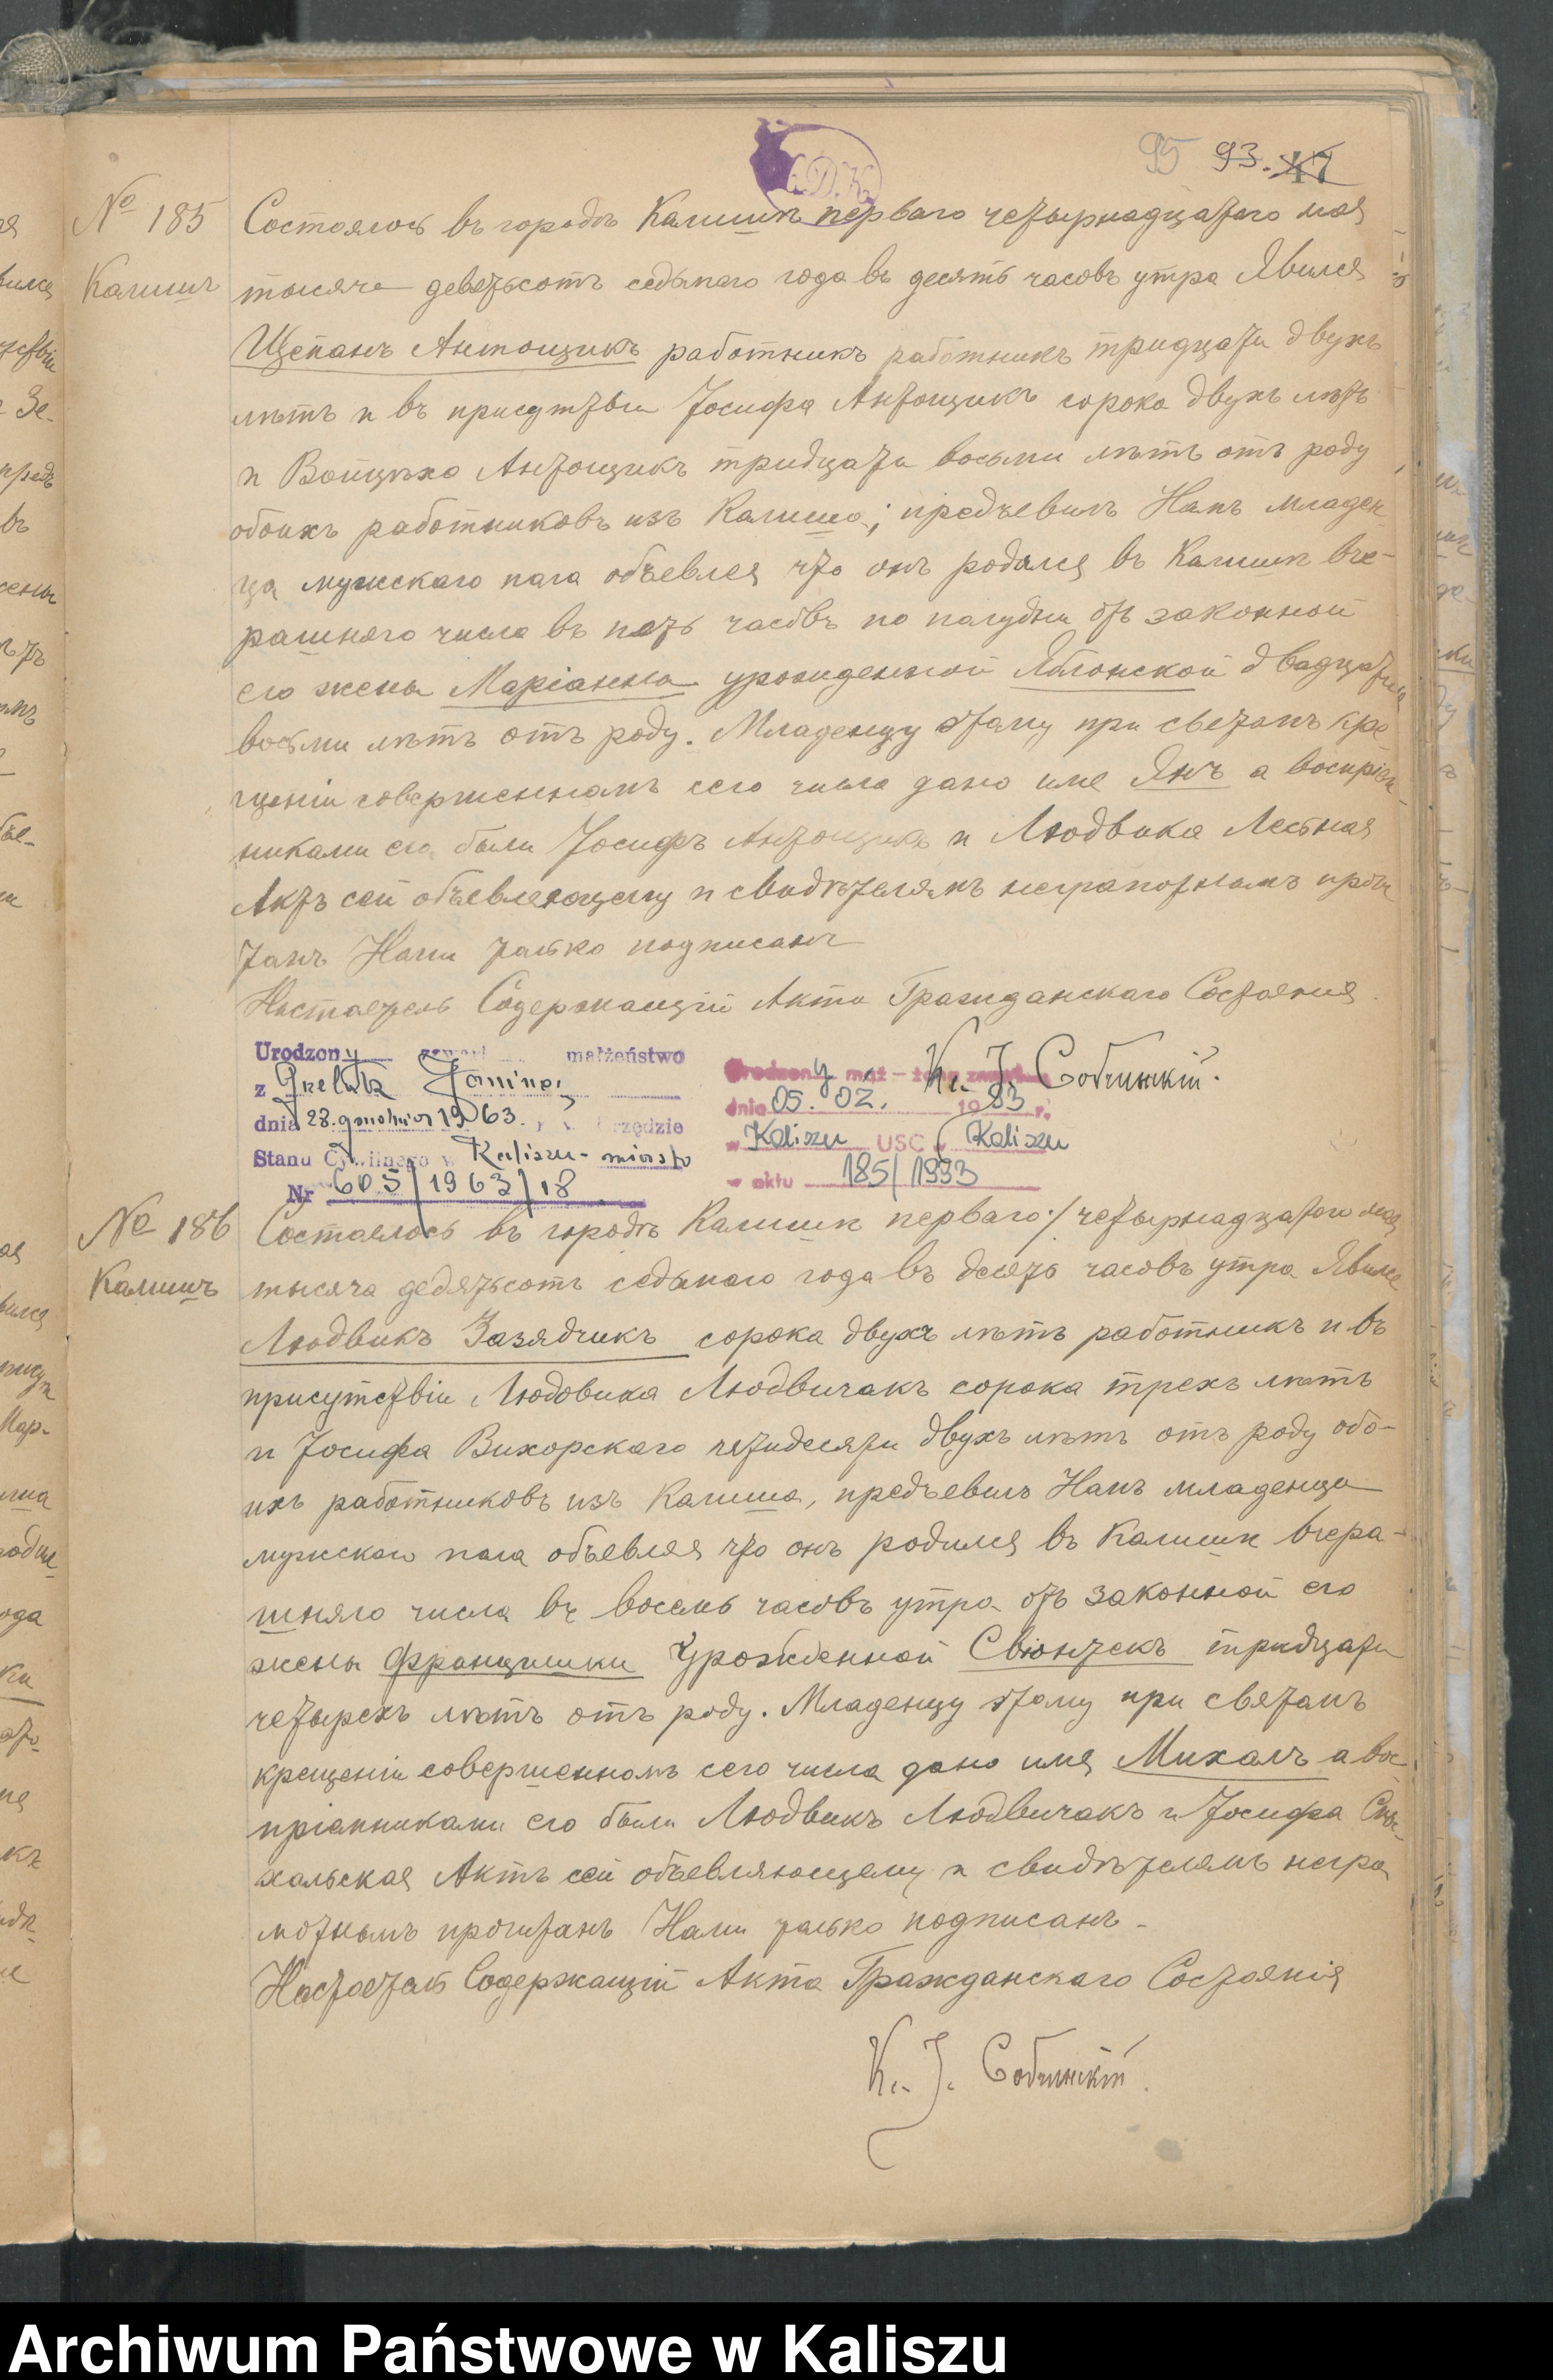 95 93. 47
С.Д.К.
№ 185
Калишъ
Состоялось въ городѣ Калишѣ перваго четырнадцатаго мая
тысяча девятьсотъ седьмаго года въ десять часовъ утра Явился
Щепанъ Антощикъ работникъ работникъ тридцати двухъ
лѣтъ и въ присутствіи Іосифа Антощикъ сорока двухъ лѣтъ
и Войцѣха Антощикъ тридцати восьми лѣтъ отъ роду
обоихъ работниковъ изъ Калиша; предъевилъ Намъ младен-
ца мужскаго пола объевляя что онъ родился въ Калишѣ вче-
рашняго числа въ пять часовъ по полудни отъ законной
его жены Маріанна урожденной Яблонской двадцати
восьми лѣтъ отъ роду. Младенцу этому при святомъ кре
щеніи совершенномъ сего числа дано имя Янъ а воспріем-
никами его были Іосифъ Антощикъ и Людвика Лесная
Актъ сей объевляющему и свидѣтелямъ неграмотнымъ прочи
танъ Нами только подписанъ
Настоятель Содержащій Акта Гражданскаго Состоянія
Кс. І. Собчинскій.
Urodzony małżeństwo
z Janina
dnia 28. grudnia 1963. r. w Urzędzie
Stanu Cywilnego w Kaliszu-miasto
Nr 605/1963/18
Urodzony mąż – żona zmarł
dnia 05. 02. 1983 r.
w Kaliszu USC w Kaliszu
nr aktu 185/1993
№ 186
Калишъ
Состоялось въ городѣ Калишѣ перваго/четырнадцатаго мая
тысяча девятьсотъ седьмаго года въ десять часовъ утра Явился
Людвикъ Зазядчикъ сорока двухъ лѣтъ работникъ и въ
присутствіи Людовика Людвичакъ сорока трехъ лѣтъ
и Іосифа Вихорскаго пятидесяти двухъ лѣтъ отъ роду обо-
ихъ работниковъ изъ Калиша, предъевилъ Намъ младенца
мужскаго пола объевляя что онъ родился въ Калишѣ вчера-
шняго числа въ восемь часовъ утра отъ законной его
жены Францишки Урожденной Свіонтекъ тридцати
четырехъ лѣтъ отъ роду. Младенцу этому при святомъ
крещеніи совершенномъ сего числа дано имя Михалъ а вос
пріемниками его были Людвикъ Людвичакъ и Іосифа
хальская Актъ сей объевляющему и свидѣтелямъ негра
мотнымъ прочитанъ Нами только подписанъ-
Настоятель Содержащій Акта Гражданскаго Состоянія
Кс. І. Собчинскій.
Archiwum Państwowe w Kaliszu